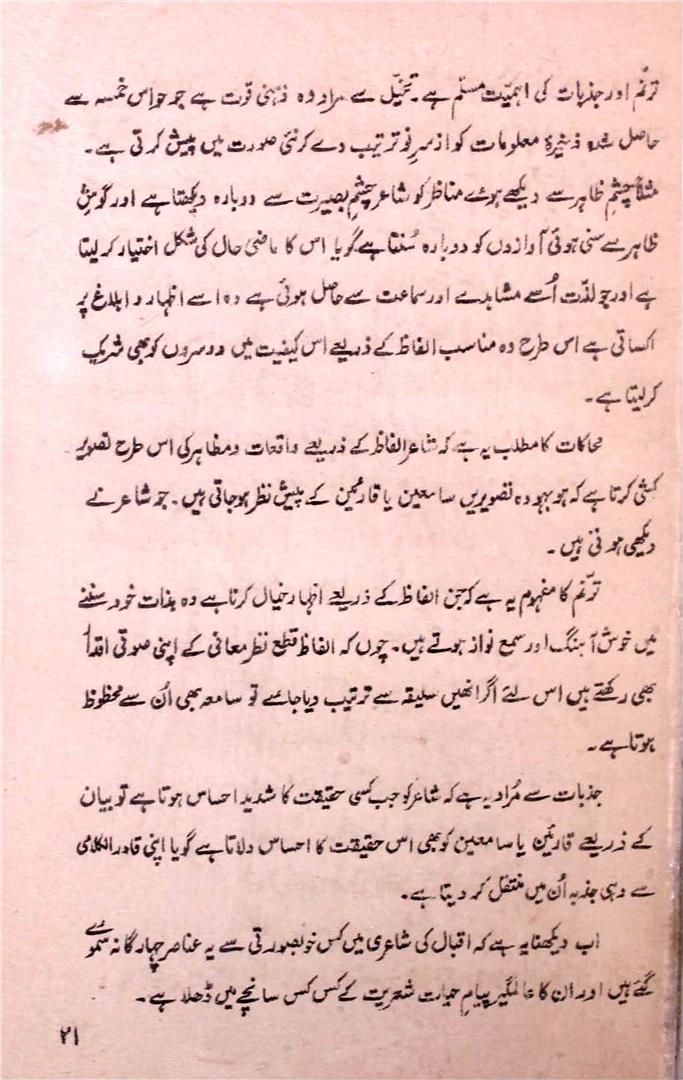 ترنّم اور جذبات کی اہمیّت مسلّم ہے۔ تخیّل سے مراد وہ ذہنی قوت ہے جو حواسِ خمسہ سے
حاصل شدہ ذخیرۂ معلومات کو از سرِ نو ترتیب دے کر نئی صورت میں پیش کرتی ہے۔
مثلاً چشمِ ظاہر سے دیکھے ہوئے مناظر کو شاعر چشمِ بصیرت سے دوبارہ دیکھتا ہے اور گوشِ
ظاہر سے سنی ہوئی آوازوں کو دوبارہ سُنتا ہے گویا اس کا ماضی حال کی شکل اختیار کر لیتا
ہے اور جو لذّت اُسے مشاہدے اور سماعت سے حاصل ہوئی ہے وہ اسے اظہار و ابلاغ پر
اکساتی ہے اس طرح وہ مناسب الفاظ کے ذریعے اس کیفیت میں دوسروں کو بھی شریک
کر لیتا ہے۔
محاکات کا مطلب یہ ہے کہ شاعر الفاظ کے ذریعے واقعات و مظاہر کی اس طرح تصویر
کشی کرتا ہے کہ ہو بہو وہ تصویریں سامعین یا قارئین کے پیشِ نظر ہو جاتی ہیں۔ جو شاعر نے
دیکھی ہوئی ہیں۔
ترنّم کا مفہوم یہ ہے کہ جن الفاظ کے ذریعے اظہارِ خیال کرنا ہے وہ بذات خود سننے
میں خوش آہنگ اور سمع نواز ہوتے ہیں۔ چوں کہ الفاظ قطع نظر معانی کے اپنی صوتی اقدار
بھی رکھتے ہیں اس لئے اگر انھیں سلیقہ سے ترتیب دیا جائے تو سامعہ بھی اُن سے محظوظ
ہوتا ہے۔
جذبات سے مُراد یہ ہے کہ شاعر کو جب کسی حقیقت کا شدید احساس ہوتا ہے تو بیان
کے ذریعے قارئین یا سامعین کو بھی اس حقیقت کا احساس دلاتا ہے گویا اپنی قادر الکلامی
سے وہی جذبہ اُن میں منتقل کر دیتا ہے۔
اب دیکھنا یہ ہے کہ اقبال کی شاعری میں کس خوبصورتی سے یہ عناصر چہارگانہ سموئے
گئے ہیں اور ان کا عالمگیر پیامِ حیات شعریت کے کس کس سانچے میں ڈھلا ہے۔
۲۱